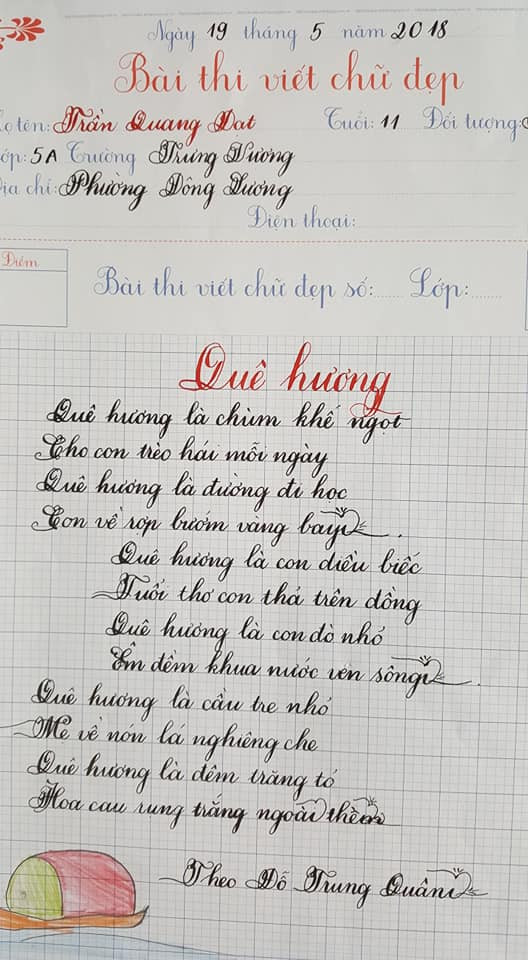 Ngày 19 tháng 5 năm 2018
Bài thi viết chữ đẹp
Họ tên: Trần Quang Đạt Tuổi: 11 Đối tượng:
Lớp: 5A Trường Trưng Vương
Địa chỉ: Phường Đông Lương
Điện thoại:
Điểm
Bài thi viết chữ đẹp số:...... Lớp:.......
Quê hương
Quê hương là chùm khế ngọt
Cho con trèo hái mỗi ngày
Quê hương là đường đi học
Con về rợp bướm vàng bay.
Quê hương là con diều biếc
Tuổi thơ con thả trên đồng
Quê hương là con đò nhỏ
Êm đềm khua nước ven sông.
Quê hương là cầu tre nhỏ
Mẹ về nón lá nghiêng che
Quê hương là đêm trăng tỏ
Hoa cau rụng trắng ngoài thềm
Theo Đỗ Trung Quân